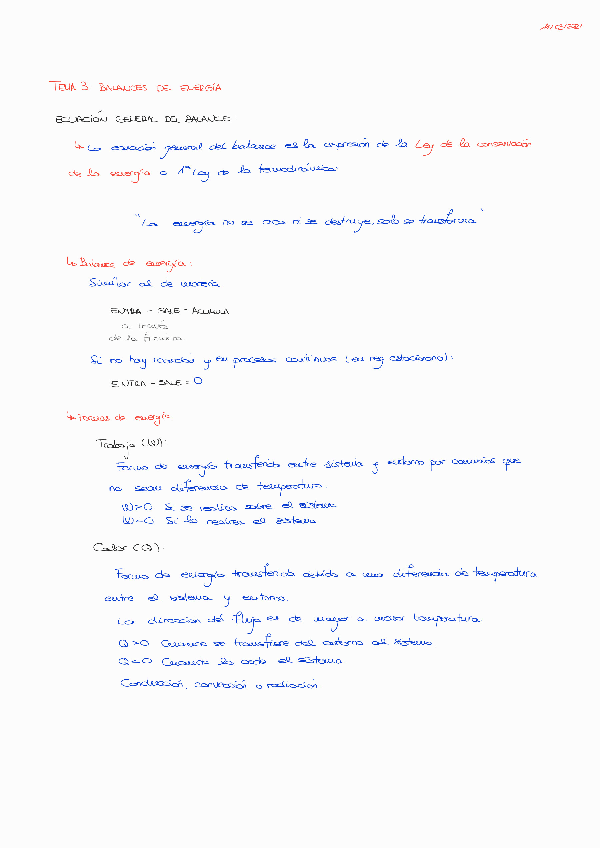 TEMA 3 BALANCES DE ENERGÍA
ECUACIÓN GENERAL DEL BALANCE:
↳ La ecuación general del balance es la expresión de la Ley de la conservación
de la energía o 1ª Ley de la termodinámica
"La energía no se crea ni se destruye, solo se transforma"
↳ Balance de energía:
Similar al de materia
ENTRA - SALE = ACUMULA
a través
de la frontera
Si no hay reacción y en procesos continuos (en reg estacionario):
ENTRA - SALE = 0
↳ Formas de energía
Trabajo (W):
Forma de energía transferida entre sistema y entorno por caminos que
no sean diferencia de temperatura.
W>0 Si se realiza sobre el sistema
W<0 Si lo realiza el sistema
Calor (Q):
Forma de energía transferida debido a una diferencia de temperatura
entre el sistema y entorno.
La dirección del flujo es de mayor a menor temperatura.
Q>0 Cuando se transfiere del entorno al sistema
Q<0 Cuando lo cede el sistema
Conducción, convección o radiación